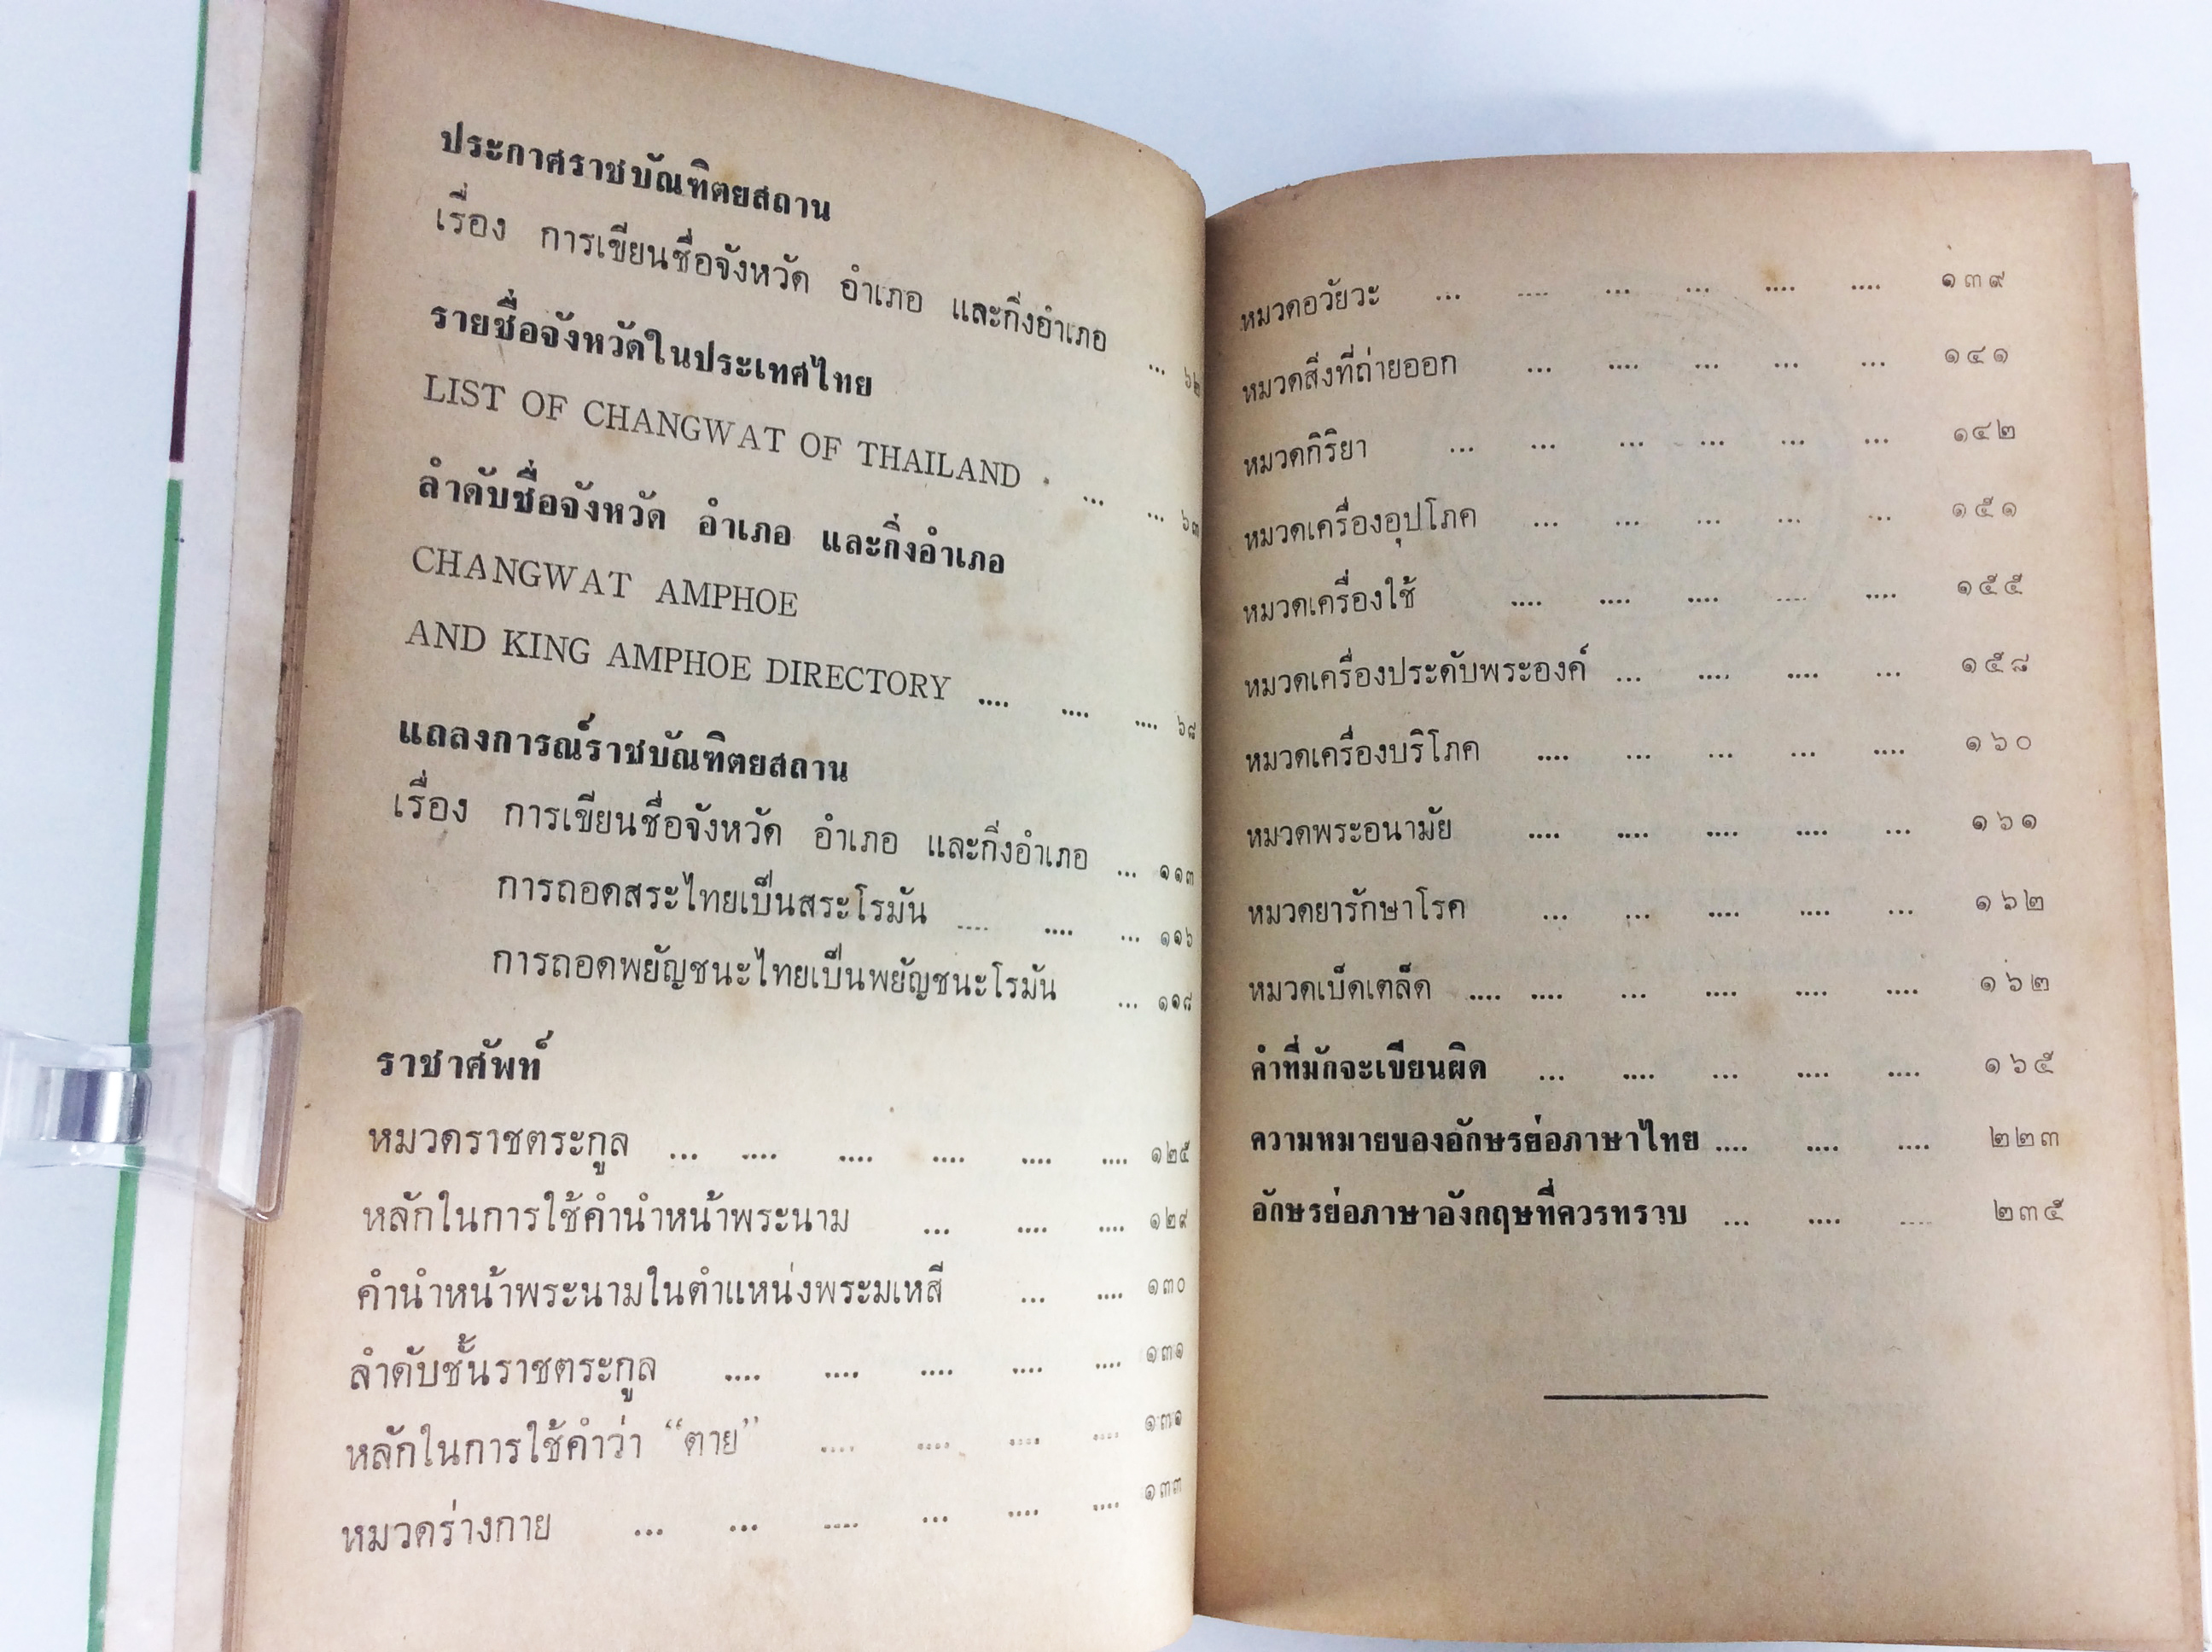 ประกาศราชบัณฑิตยสถาน
เรื่อง การเขียนชื่อจังหวัด อำเภอ และกิ่งอำเภอ ... ๖๒
รายชื่อจังหวัดในประเทศไทย
LIST OF CHANGWAT OF THAILAND . ... ... ๖๓
ลำดับชื่อจังหวัด อำเภอ และกิ่งอำเภอ
CHANGWAT AMPHOE
AND KING AMPHOE DIRECTORY .... .... .... ๖๘
แถลงการณ์ราชบัณฑิตยสถาน
เรื่อง การเขียนชื่อจังหวัด อำเภอ และกิ่งอำเภอ ... ๑๑๓
การถอดสระไทยเป็นสระโรมัน .... .... ... ๑๑๖
การถอดพยัญชนะไทยเป็นพยัญชนะโรมัน ... ๑๑๘
ราชาศัพท์
หมวดราชตระกูล ... .... .... .... .... .... ๑๒๕
หลักในการใช้คำนำหน้าพระนาม ... .... .... ๑๒๙
คำนำหน้าพระนามในตำแหน่งพระมเหสี ... .... ๑๓๐
ลำดับชั้นราชตระกูล .... .... .... .... .... ๑๓๑
หลักในการใช้คำว่า “ตาย” .... .... .... .... ๑๓๑
หมวดร่างกาย ... ... .... ... .... .... ๑๓๓
หมวดอวัยวะ ... .... ... ... .... .... ๑๓๙
หมวดสิ่งที่ถ่ายออก ... .... ... ... ... ๑๔๑
หมวดกิริยา ... ... ... ... ... ... ๑๔๒
หมวดเครื่องอุปโภค ... ... ... ... ... ๑๕๑
หมวดเครื่องใช้ .... .... .... .... .... ๑๕๕
หมวดเครื่องประดับพระองค์ ... .... .... ... ๑๕๘
หมวดเครื่องบริโภค .... ... ... ... .... ๑๖๐
หมวดพระอนามัย .... .... .... .... ... ๑๖๑
หมวดยารักษาโรค ... ... .... .... ... ๑๖๒
หมวดเบ็ดเตล็ด .... .... ... .... .... .... ๑๖๒
คำที่มักจะเขียนผิด ... .... ... .... .... ๑๖๕
ความหมายของอักษรย่อภาษาไทย .... .... .... ๒๒๓
อักษรย่อภาษาอังกฤษที่ควรทราบ ... .... .... ๒๓๕